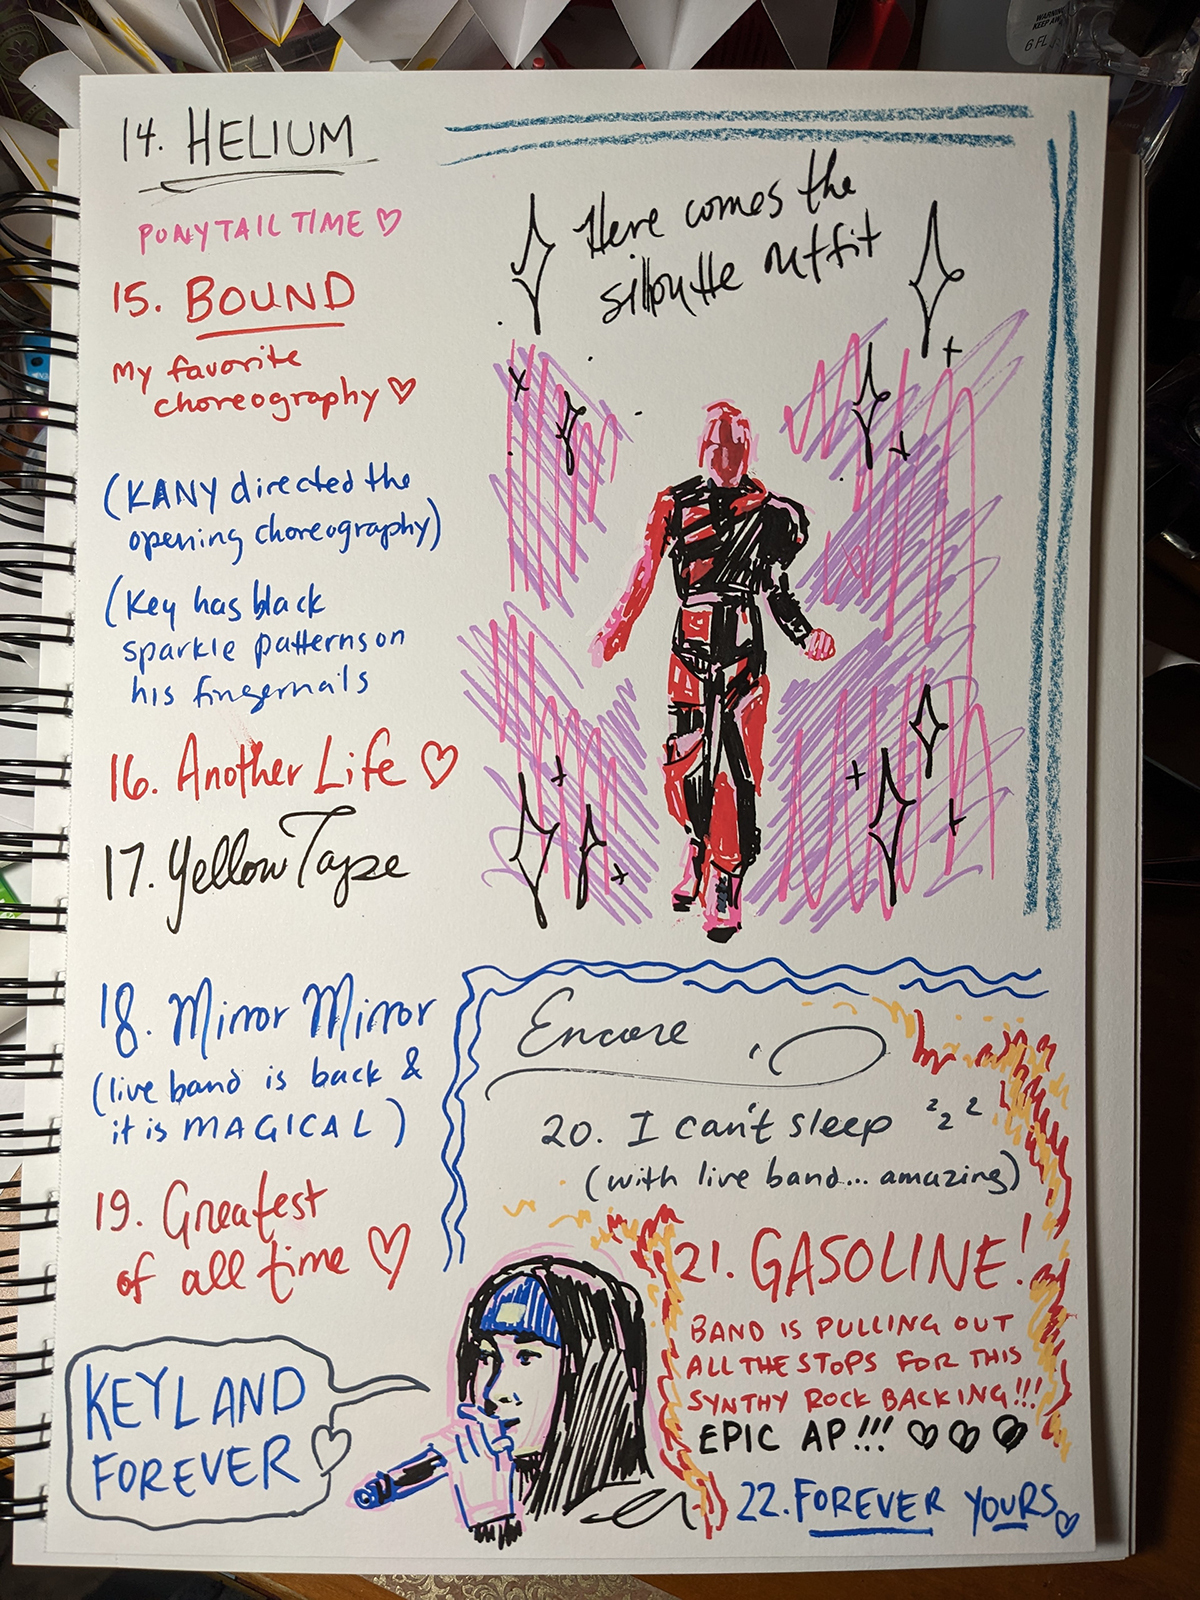 14. HELIUM
PONYTAIL TIME ♡
15. BOUND
My favorite
choreography ♡
(KANY directed the
opening choreography)
(Key has black
sparkle patterns on
his fingernails
16. Another Life ♡
17. Yellow Tape
18. Mirror Mirror
(live band is back &
it is MAGICAL)
19. Greatest
of all time ♡
KEYLAND
FOREVER ♡
Here comes the
sillouette outfit
Encore
20. I can't sleep z z z
(with live band... amazing)
21. GASOLINE!
BAND IS PULLING OUT
ALL THE STOPS FOR THIS
SYNTHY ROCK BACKING!!!
EPIC AP!!! ♡ ♡ ♡
22. FOREVER YOURS ♡
WARNING
KEEP AW
6 FL